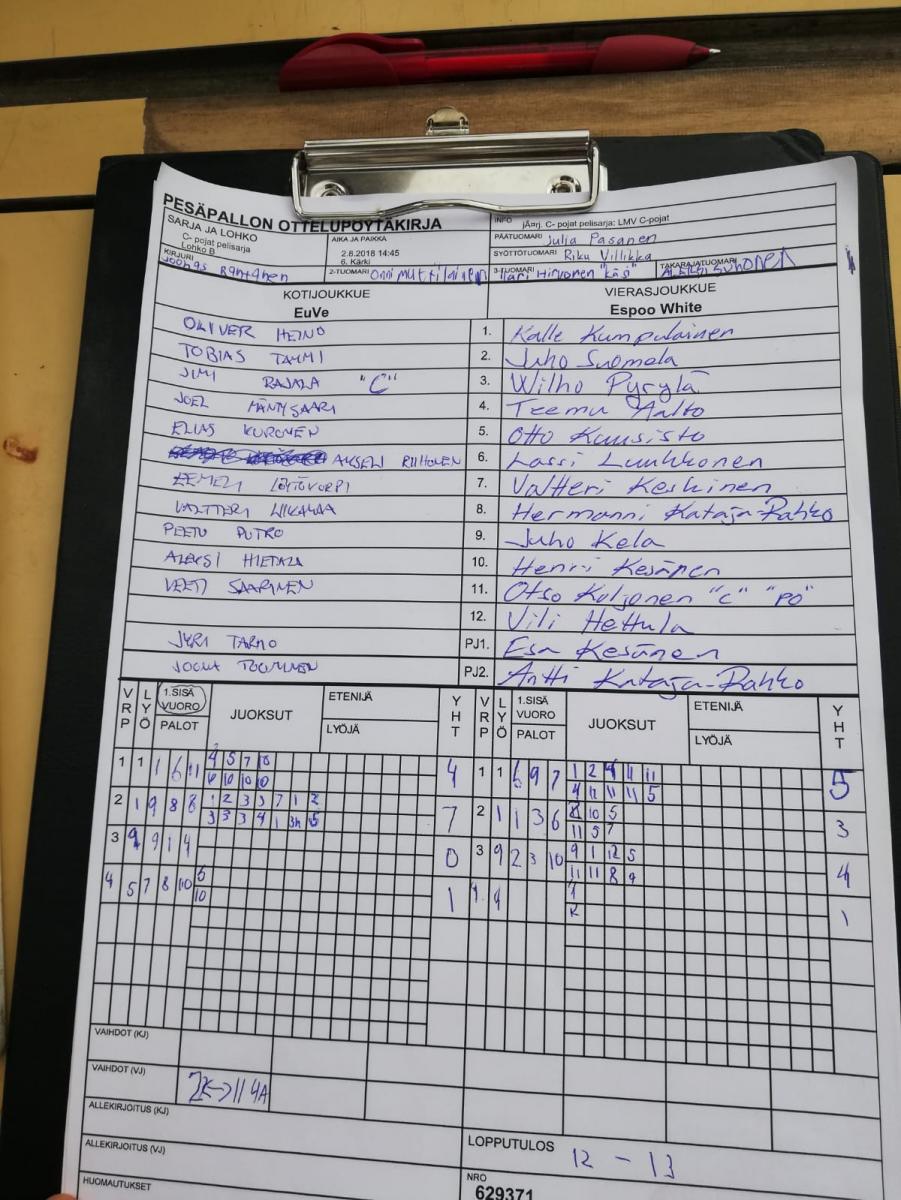 PESÄPALLON OTTELUPÖYTÄKIRJA
SARJA JA LOHKO
C- pojat pelisarja
Lohko B
AIKA JA PAIKKA
2.8.2018 14:45
6. Kärki
INFO
jÄarj. C- pojat pelisarja: LMV C-pojat
PÄÄTUOMARI Julia Pasanen
SYÖTTÖTUOMARI Riku Villikka
KIRJURI
Joonas Rantanen
2-TUOMARI Onni Muttilainen
3-TUOMARI Ilari Hirvonen "käsi"
TAKARAJATUOMARI Suhonen
KOTIJOUKKUE
EuVe
VIERASJOUKKUE
Espoo White
OLIVER HEINO 1. Kalle Kumpulainen
TOBIAS TAMMI 2. Juho Suomela
JIMI RAJALA "C" 3. Wilho Pyrylä
JOEL MÄNTYSAARI 4. Teemu Aalto
ELIAS KURONEN 5. Otto Kuusisto
AKSELI RIIHONEN 6. Lassi Luukkonen
EEMELI 7. Valtteri Keskinen
VALTTERI 8. Hermanni Kataja-Rahko
PEETU PUTRO 9. Juho Kela
ALEKSI HIETALA 10. Henri Kesänen
VEETI SAARINEN 11. Otso Koljonen "C" "PO"
12. Vili Hettula
JYRI TARMO PJ1. Esa Kesänen
JOONA PJ2. Antti Kataja-Rahko
VRP LYÖ 1.SISÄ VUORO PALOT JUOKSUT ETENIJÄ LYÖJÄ YHT VRP LYÖ 1.SISÄ VUORO PALOT JUOKSUT ETENIJÄ LYÖJÄ YHT
1 1 1 6 11 4 5 7 8 4 1 1 6 9 7 1 2 9 4 11 5
6 10 10 10 4 11 11 11 5
2 1 9 8 8 1 2 3 3 7 1 2 7 2 1 1 3 6 8 10 5 3
3 3 3 4 1 3K 5 11 5 7
3 9 9 1 4 0 3 9 2 3 10 9 1 12 5 4
11 11 8 9
4 5 7 8 10 5 1 4 4 1
10 K
VAIHDOT (KJ)
VAIHDOT (VJ) 2K->11 4A
ALLEKIRJOITUS (KJ)
ALLEKIRJOITUS (VJ)
LOPPUTULOS 12 - 13
HUOMAUTUKSET
NRO
629371